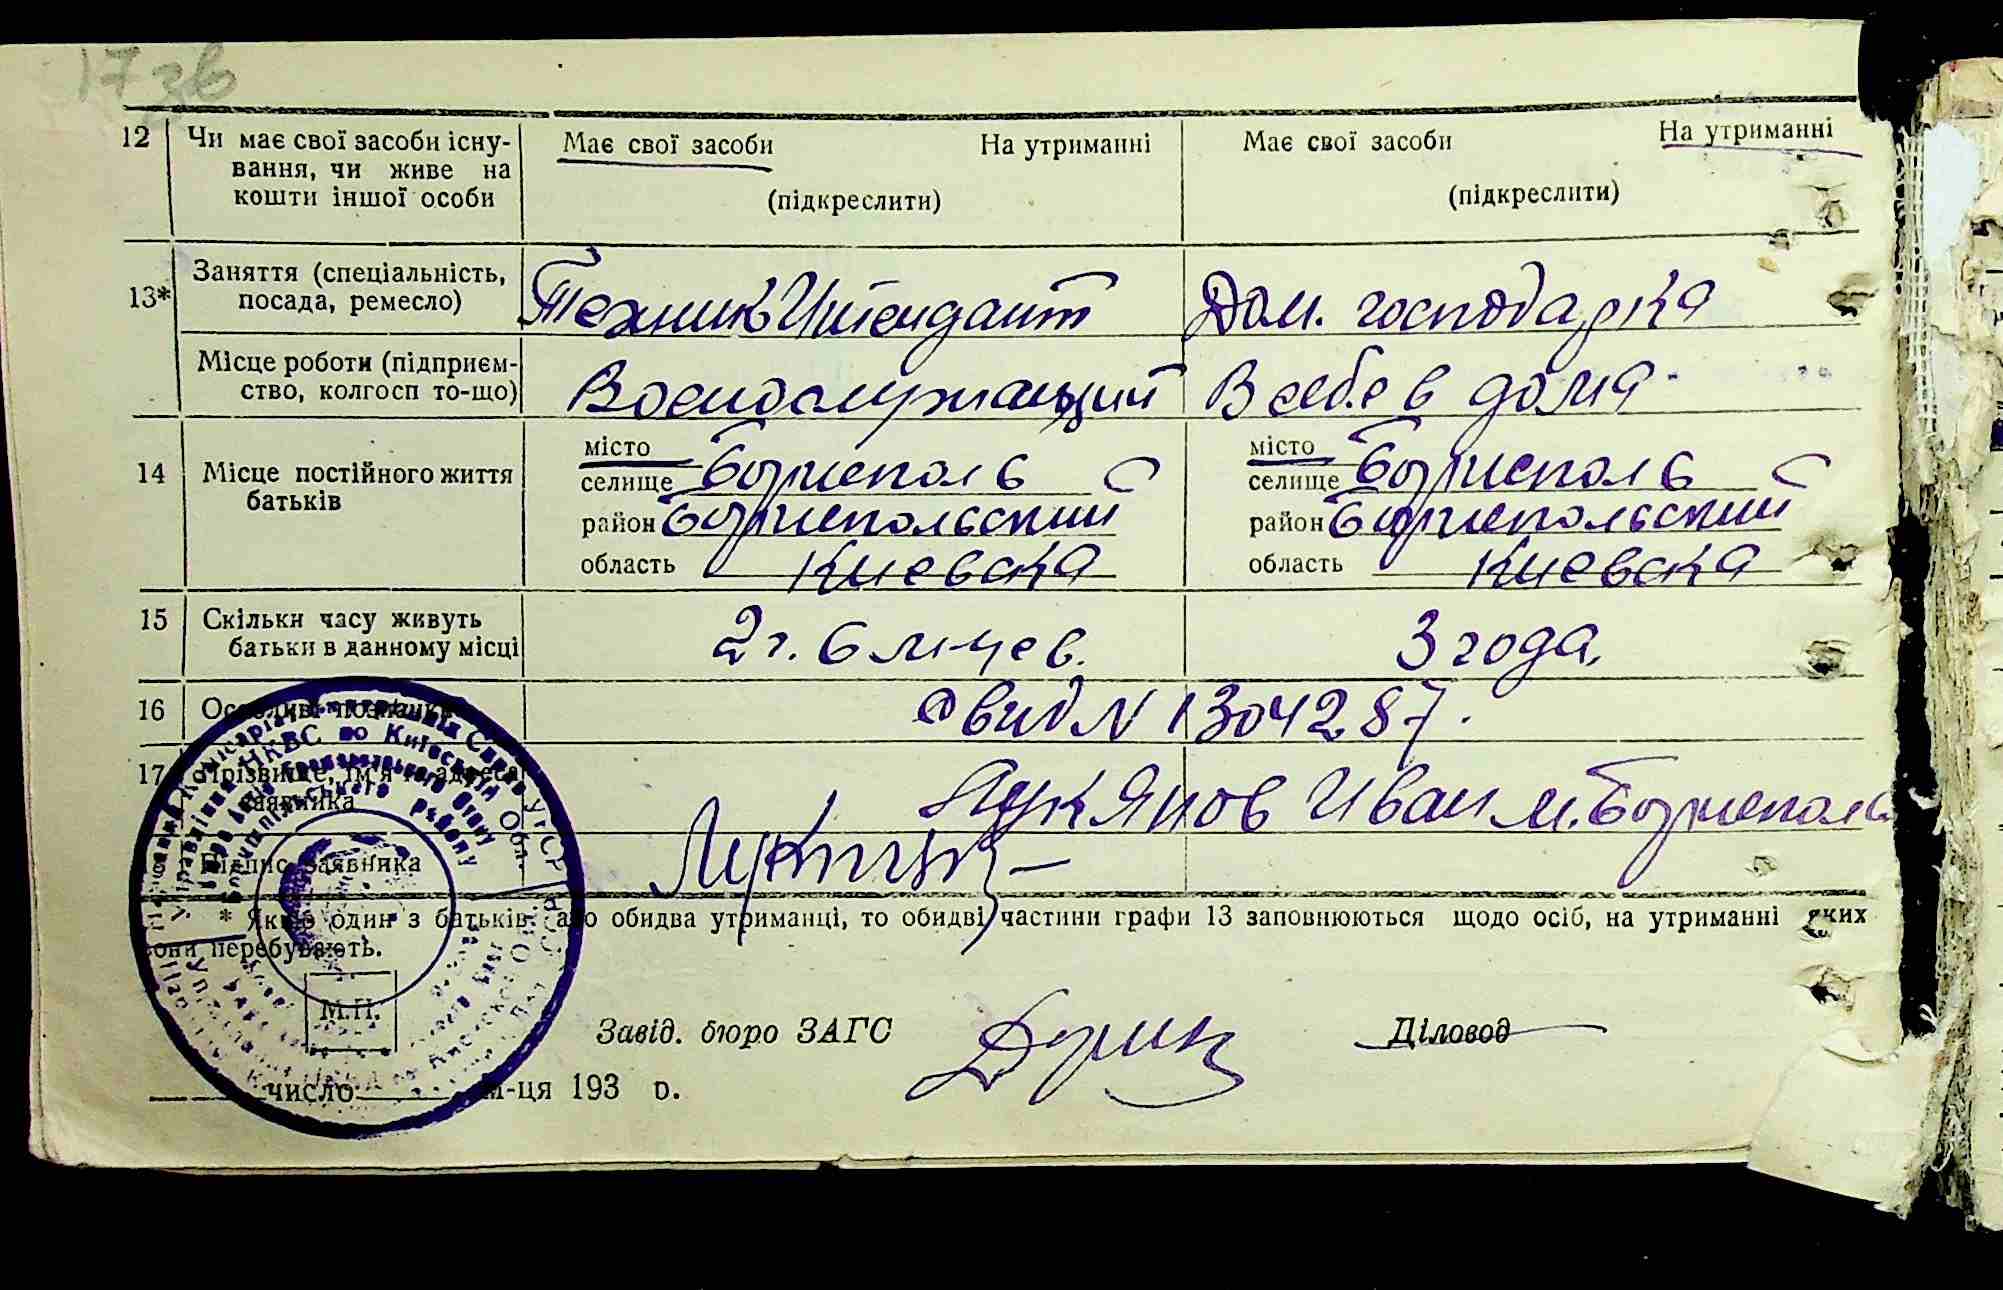 17 зв
12 Чи має свої засоби існу-
вання, чи живе на
кошти іншої особи
Має свої засоби На утриманні
(підкреслити)
Має свої засоби На утриманні
(підкреслити)
13* Заняття (спеціальність,
посада, ремесло)
Техник Интендант
Дом. господарка
Місце роботи (підприєм-
ство, колгосп то-що)
Военослужащий
В себе в дома
14 Місце постійного життя
батьків
місто
селище Борисполь
район Бориспольский
область Киевска
місто
селище Борисполь
район Бориспольский
область Киевска
15 Скільки часу живуть
батьки в данному місці
2 г. 6 м-цев.
3 года.
16 Особливі позначки
Свид N 1304287.
17 Прізвище, ім'я та адреса
заявника
Лукянов Иван м. Борисполь
Підпис заявника
* Якщо один з батьків, або обидва утриманці, то обидві частини графи 13 заповнюються щодо осіб, на утриманні яких
вони перебувають.
М.П.
Завід. бюро ЗАГС
Діловод
число м-ця 193 р.